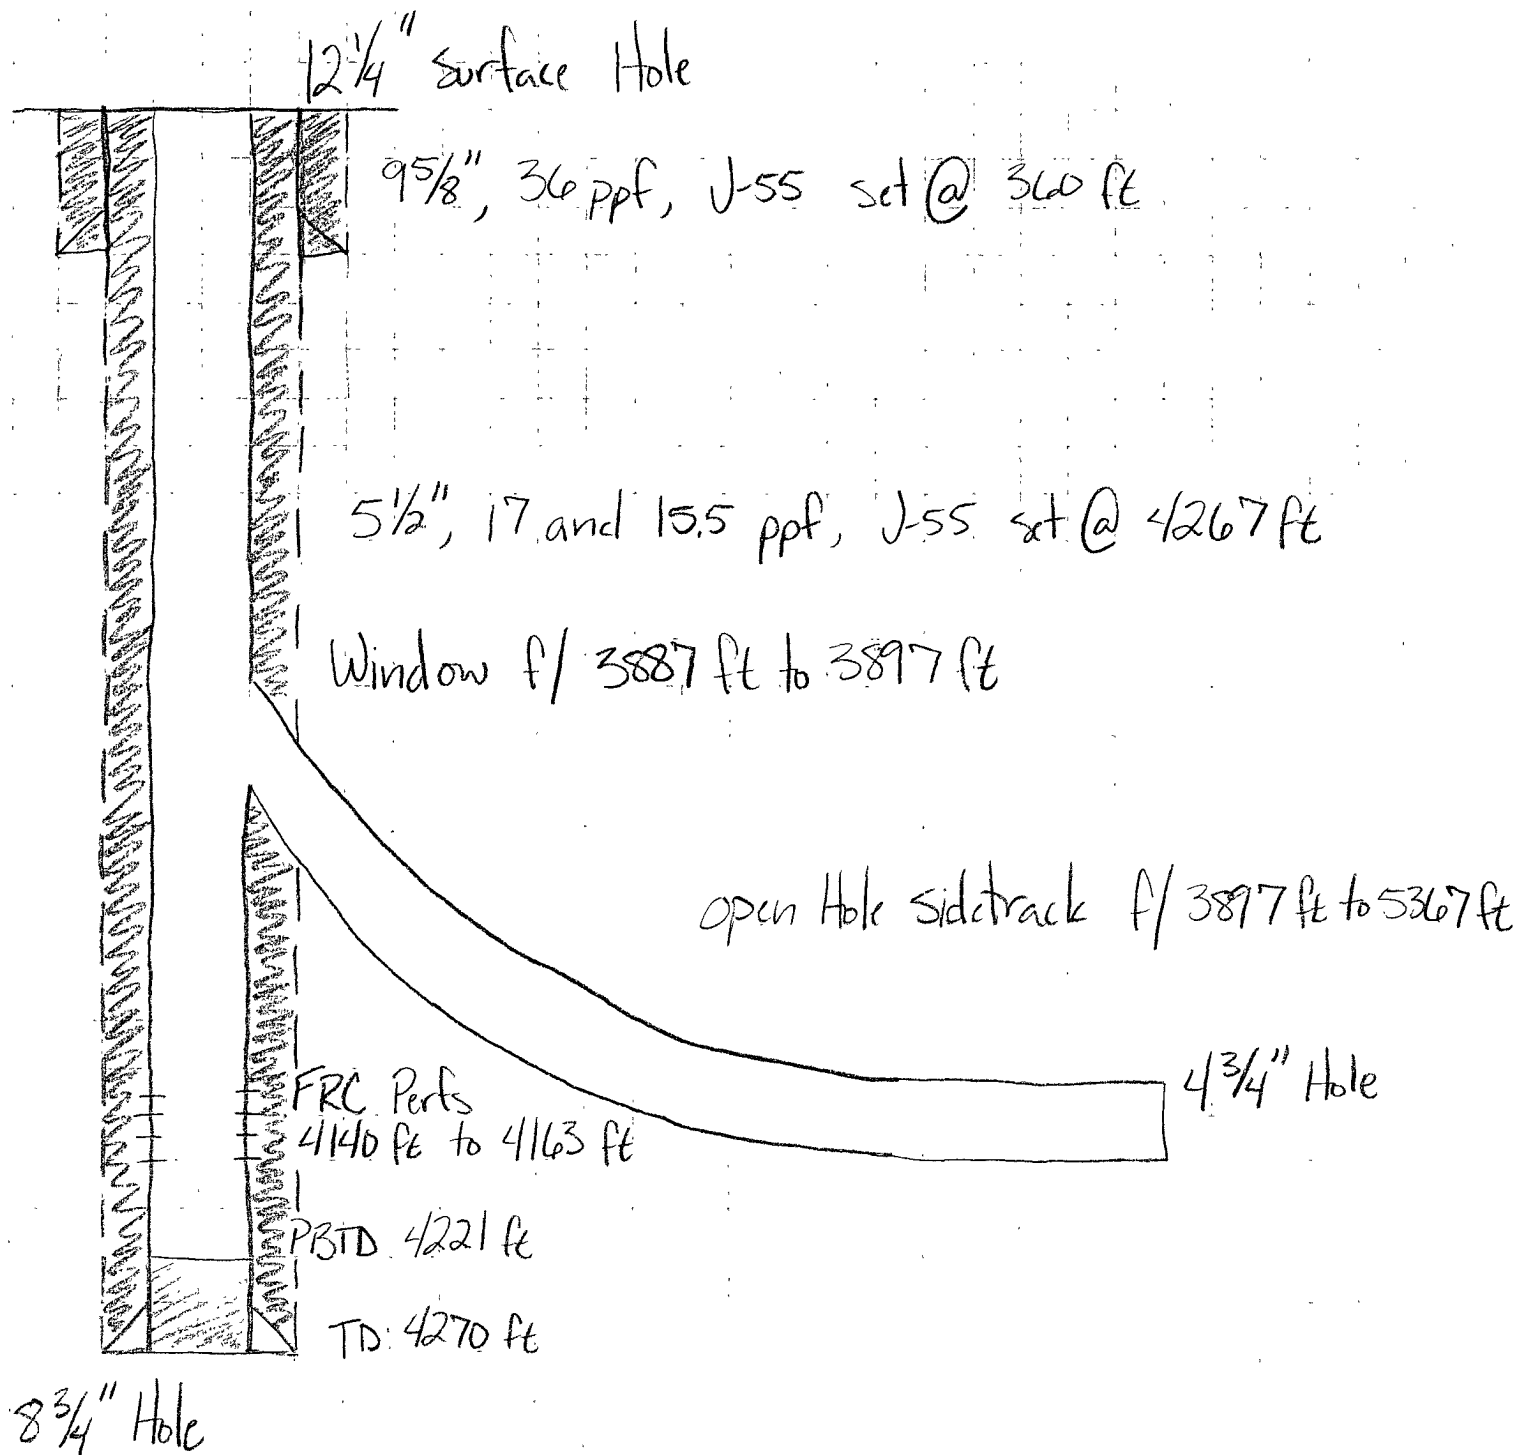 12 1/4" Surface Hole
9 5/8", 36 ppf, J-55 set @ 360 ft
5 1/2", 17 and 15.5 ppf, J-55 set @ 4267 ft
Window f/ 3887 ft to 3897 ft
open Hole sidetrack f/ 3897 ft to 5367 ft
4 3/4" Hole
FRC Perfs
4140 ft to 4163 ft
PBTD 4221 ft
TD: 4270 ft
8 3/4" Hole